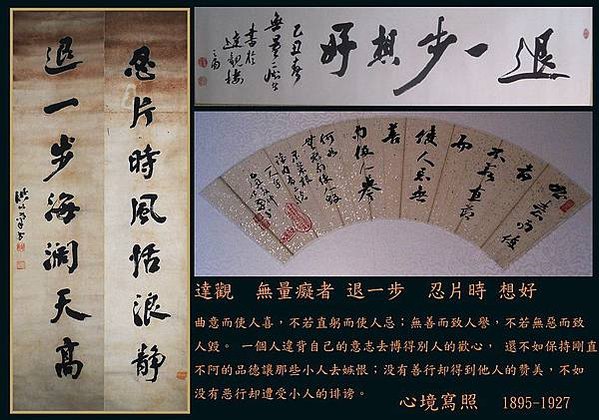 忍片時風恬浪靜
退一步海濶天高
退一步想好
乙丑春
書於
達觀樓
不若直躬
而
使人忌無
善
而致人譽
達觀　無量癡者 退一步　忍片時 想好
曲意而使人喜，不若直躬而使人忌；無善而致人譽，不若無惡而致
人毀。 一個人違背自己的意志去博得別人的歡心， 還不如保持剛直
不阿的品德讓那些小人去嫉恨；没有善行却得到他人的赞美，不如
没有惡行却遭受小人的誹谤。
心境寫照 1895-1927